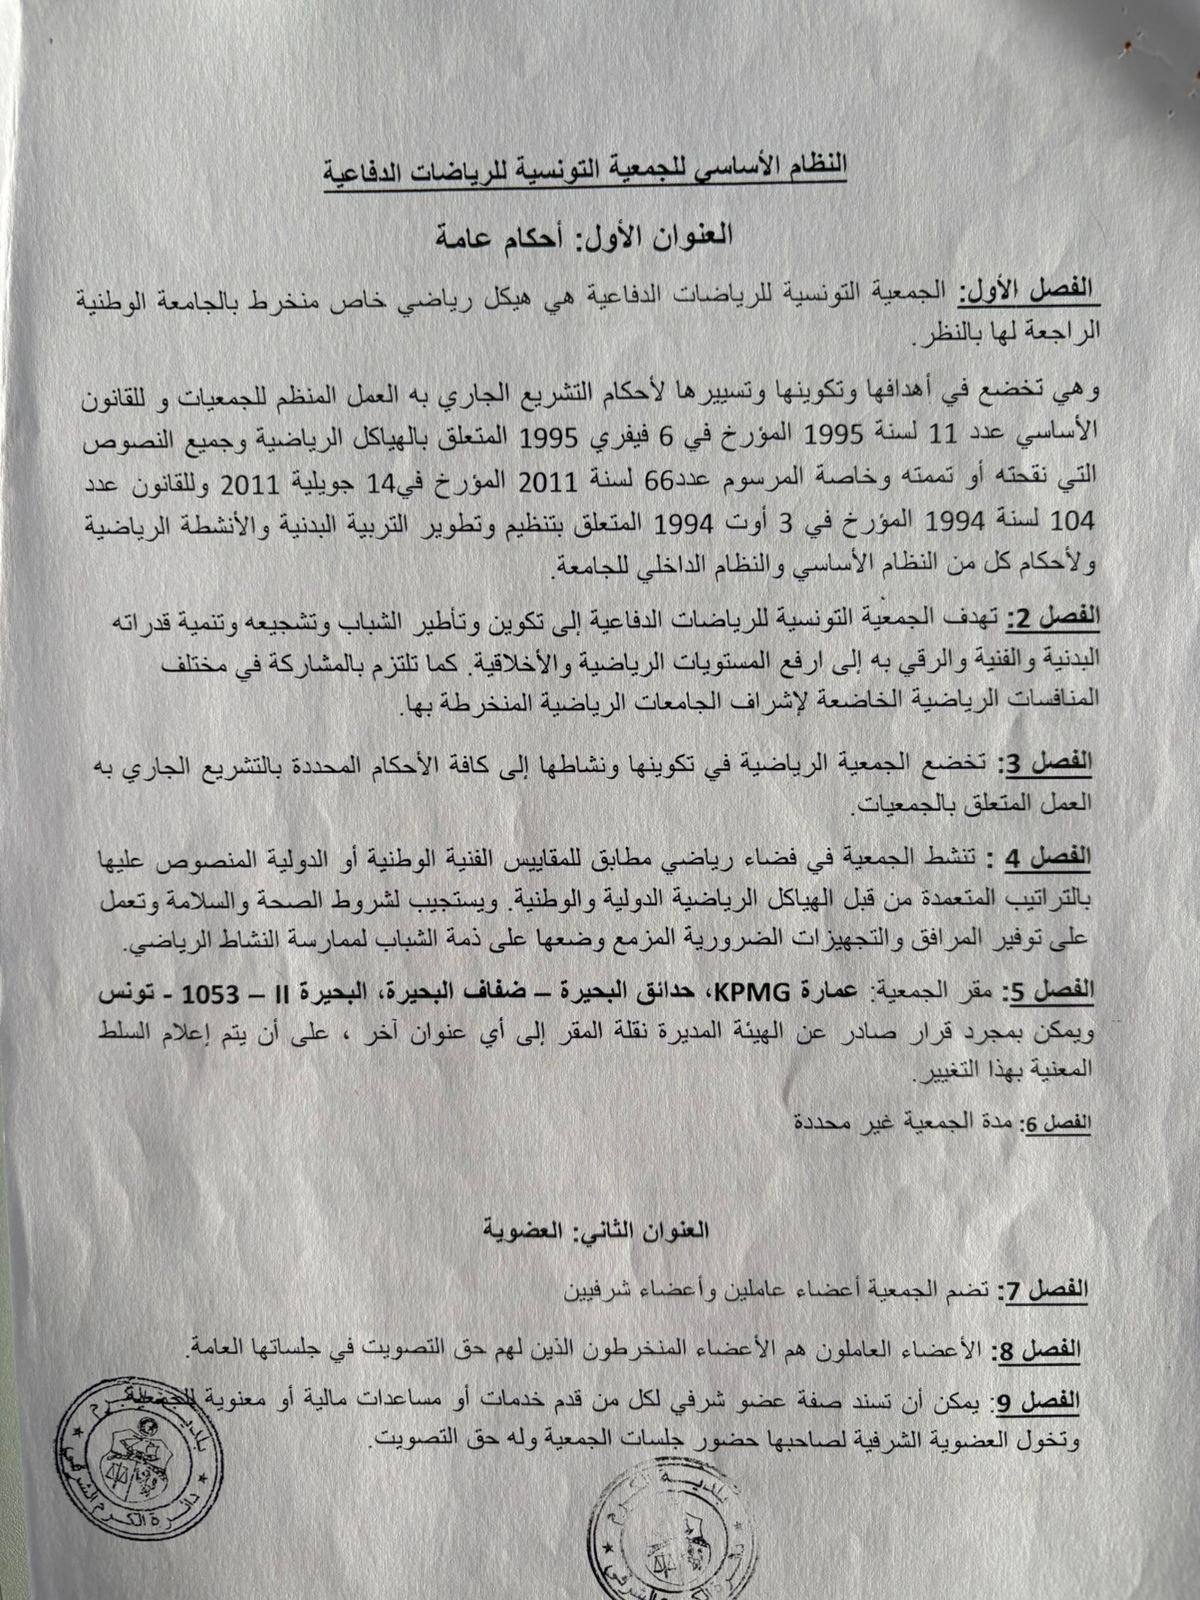 النظام الأساسي للجمعية التونسية للرياضات الدفاعية
العنوان الأول: أحكام عامة
الفصل الأول: الجمعية التونسية للرياضات الدفاعية هي هيكل رياضي خاص منخرط بالجامعة الوطنية
الراجعة لها بالنظر.
وهي تخضع في أهدافها وتكوينها وتسييرها لأحكام التشريع الجاري به العمل المنظم للجمعيات و للقانون
الأساسي عدد 11 لسنة 1995 المؤرخ في 6 فيفري 1995 المتعلق بالهياكل الرياضية وجميع النصوص
التي نقحته أو تممته وخاصة المرسوم عدد66 لسنة 2011 المؤرخ في14 جويلية 2011 وللقانون عدد
104 لسنة 1994 المؤرخ في 3 أوت 1994 المتعلق بتنظيم وتطوير التربية البدنية والأنشطة الرياضية
ولأحكام كل من النظام الأساسي والنظام الداخلي للجامعة.
الفصل 2: تهدف الجمعية التونسية للرياضات الدفاعية إلى تكوين وتأطير الشباب وتشجيعه وتنمية قدراته
البدنية والفنية والرقي به إلى ارفع المستويات الرياضية والأخلاقية. كما تلتزم بالمشاركة في مختلف
المنافسات الرياضية الخاضعة لإشراف الجامعات الرياضية المنخرطة بها.
الفصل 3: تخضع الجمعية الرياضية في تكوينها ونشاطها إلى كافة الأحكام المحددة بالتشريع الجاري به
العمل المتعلق بالجمعيات.
الفصل 4 : تنشط الجمعية في فضاء رياضي مطابق للمقاييس الفنية الوطنية أو الدولية المنصوص عليها
بالتراتيب المتعمدة من قبل الهياكل الرياضية الدولية والوطنية. ويستجيب لشروط الصحة والسلامة وتعمل
على توفير المرافق والتجهيزات الضرورية المزمع وضعها على ذمة الشباب لممارسة النشاط الرياضي.
الفصل 5: مقر الجمعية: عمارة KPMG، حدائق البحيرة – ضفاف البحيرة، البحيرة II – 1053 - تونس
ويمكن بمجرد قرار صادر عن الهيئة المديرة نقلة المقر إلى أي عنوان آخر ، على أن يتم إعلام السلط
المعنية بهذا التغيير.
الفصل 6: مدة الجمعية غير محددة
العنوان الثاني: العضوية
الفصل 7: تضم الجمعية أعضاء عاملين وأعضاء شرفيين
الفصل 8: الأعضاء العاملون هم الأعضاء المنخرطون الذين لهم حق التصويت في جلساتها العامة.
الفصل 9: يمكن أن تسند صفة عضو شرفي لكل من قدم خدمات أو مساعدات مالية أو معنوية للجمعية
وتخول العضوية الشرفية لصاحبها حضور جلسات الجمعية وله حق التصويت.
بلدية الكرم
دائرة الكرم الشرقي
بلدية الكرم
دائرة الكرم الشرقي